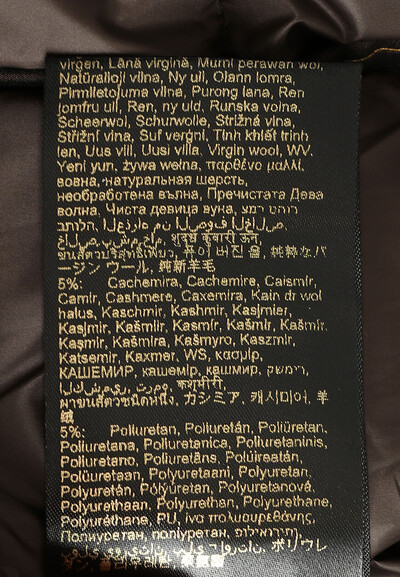 virgen, Lână virgină, Murni perawan wol,
Natūralioji vilna, Ny ull, Olann lomra,
Pirmlietojuma vilna, Purong lana, Ren
jomfru ull, Ren, ny uld, Runska volna,
Scheerwol, Schurwolle, Strižná vlna,
Střižní vlna, Suf verġnī, Tinh khiết trinh
len, Uus vill, Uusi villa, Virgin wool, WV,
Yeni yun, żywa wełna, παρθένο μαλλί,
вовна, натуральная шерсть,
необработена вълна, Пречистата Дева
волна, Чиста девица вуна, צמר רוטרי
العذراء من الصوف الخالص
शुद्ध कुंवारी ऊन,
純粋なバ
ージン ウール, 純新羊毛
5%: Cachemira, Cachemire, Caismír,
Camir, Cashmere, Caxemira, Kain dr wol
halus, Kaschmir, Kashmir, Kasjmier,
Kasjmir, Kašmiir, Kasmír, Kašmír, Kašmir,
Kaşmir, Kašmira, Kašmyro, Kaszmir,
Katsemir, Kaxmer, WS, κασμίρ,
КАШЕМИР, кашемір, кашмир, קשמיר,
الكشمير, ترمو, कश्मीरी,
カシミア, 캐시미어, 羊
絨
5%: Poliuretan, Poliuretán, Poliüretan,
Poliuretana, Poliuretanica, Poliuretaninis,
Poliuretano, Poliuretāns, Polúireatán,
Polüuretaan, Polyuretaani, Polyuretan,
Polyuretán, Pólýúretan, Polyuretanová,
Polyurethaan, Polyurethan, Polyurethane,
Polyuréthane, PU, ίνα πολυουρεθάνης,
Полиуретан, поліуретан, פוליאוריתן,
بولي يوريثان, پلی اورتان, ポリウレ
タン, 폴리우레탄, 聚氨酯